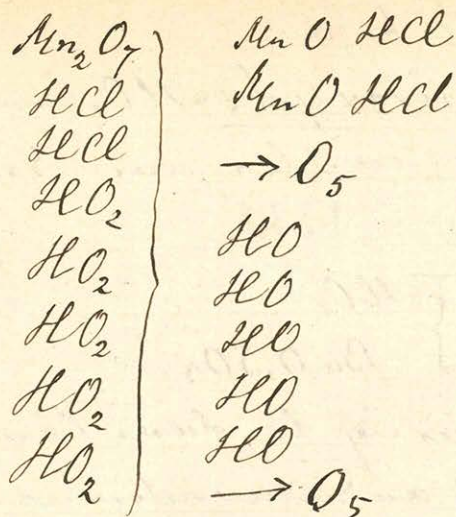 Mn₂O₇
HCl
HCl
HO₂
HO₂
HO₂
HO₂
HO₂
MnO HCl
MnO HCl
→ O₅
HO
HO
HO
HO
HO
→ O₅